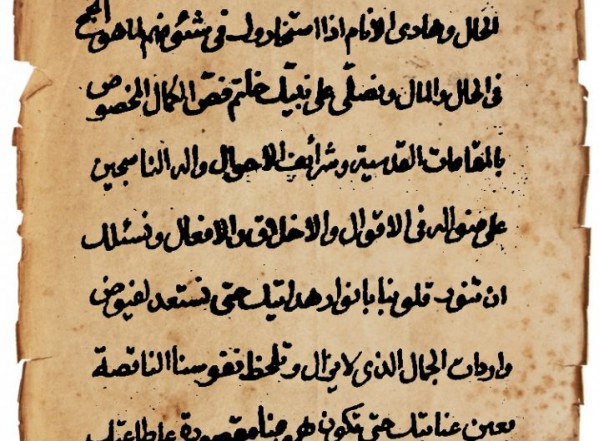 الحال وهادى الانام اذا استخاروك فى شئونهم لما هو انجح
فى الحال والمال ونصلّى على نبيّك خاتم فصّ الكمال المخصوص
بالمقامات القدسية وشرائف الاحوال واله الناسجين
على منواله فى الاقوال والاخلاق والافعال ونسئلك
ان تنور قلوبنا بانوار هدايتك حتى نستعد لفيوض
واردات الجمال الذى لا يزال وتلحظ نفوسنا الناقصة
بعين عنايتك حتى تكون